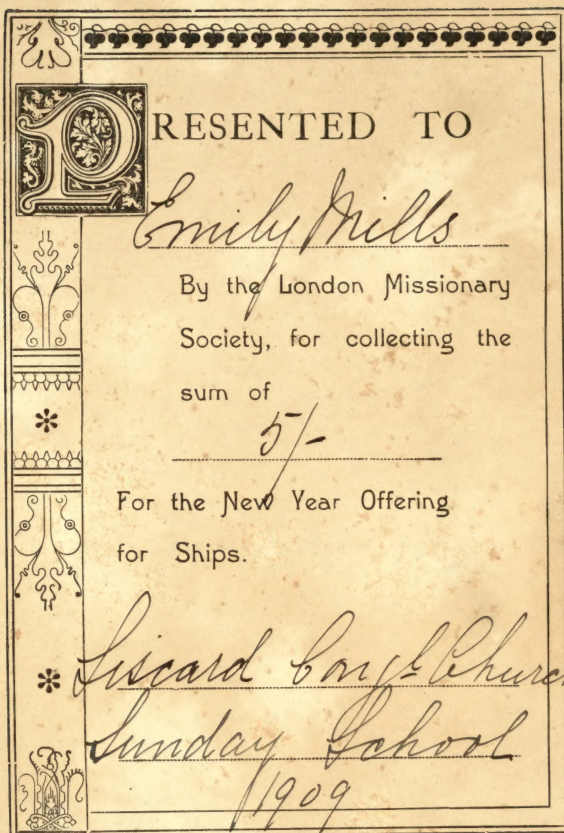 PRESENTED TO
Emily Mills
By the London Missionary
Society, for collecting the
sum of
5/-
For the New Year Offering
for Ships.
Liscard Congl Church
Sunday School
1909